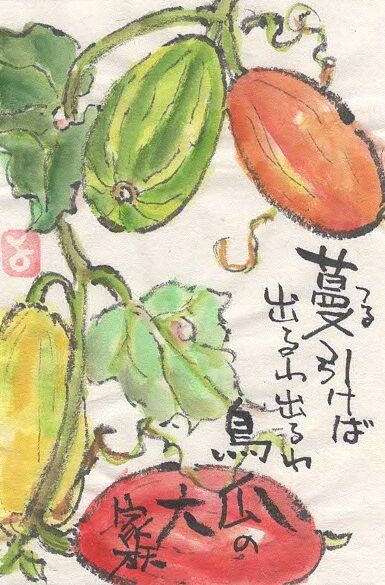 蔓引けば
つる
出るわ出るわ
烏瓜の
大家族